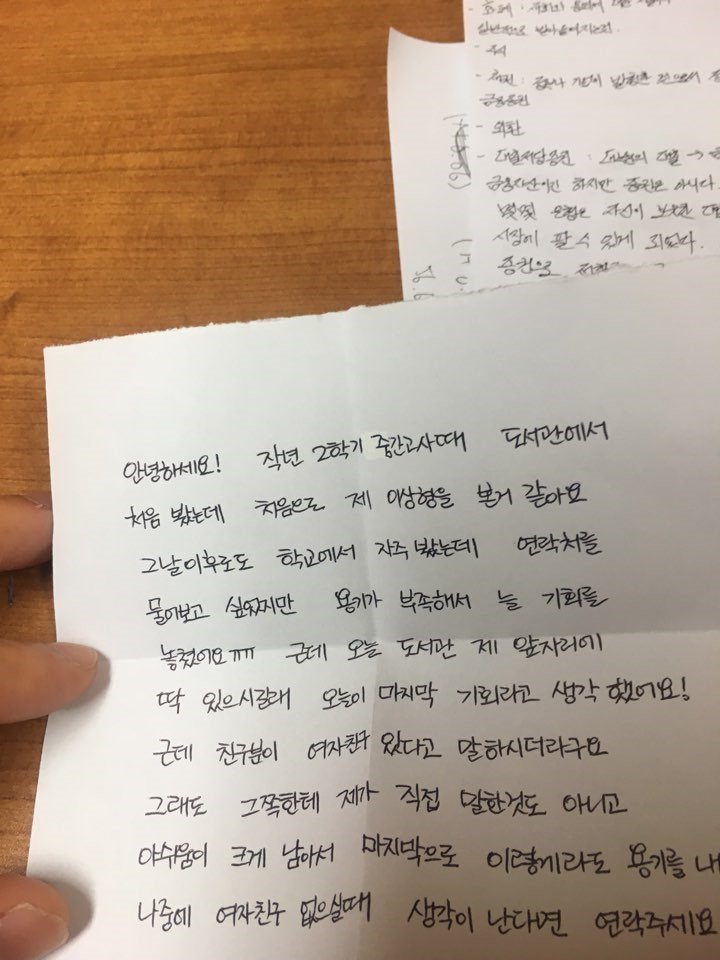 일반적으로 받아들여지는것.
- 주식
금융증권
- 외환
- 대출저당증권 : 다수의 대출 →
금융자산이긴 하지만 증권은 아니다.
몇몇 은행은 자신이 보유한
시장에 팔 수 있게 되었다.
증권으로
안녕하세요! 작년 2학기 중간고사때 도서관에서
처음 봤는데 처음으로 제 이상형을 본거 같아요
그날이후로도 학교에서 자주 봤는데 연락처를
물어보고 싶었지만 용기가 부족해서 늘 기회를
놓쳤어요ㅠㅠ 근데 오늘 도서관 제 앞자리에
딱 있으시길래 오늘이 마지막 기회라고 생각 했어요!
근데 친구분이 여자친구 있다고 말하시더라구요
그래도 그쪽한테 제가 직접 말한것도 아니고
아쉬움이 크게 남아서 마지막으로 이렇게라도 용기를 내
나중에 여자친구 없으실때 생각이 난다면 연락주세요